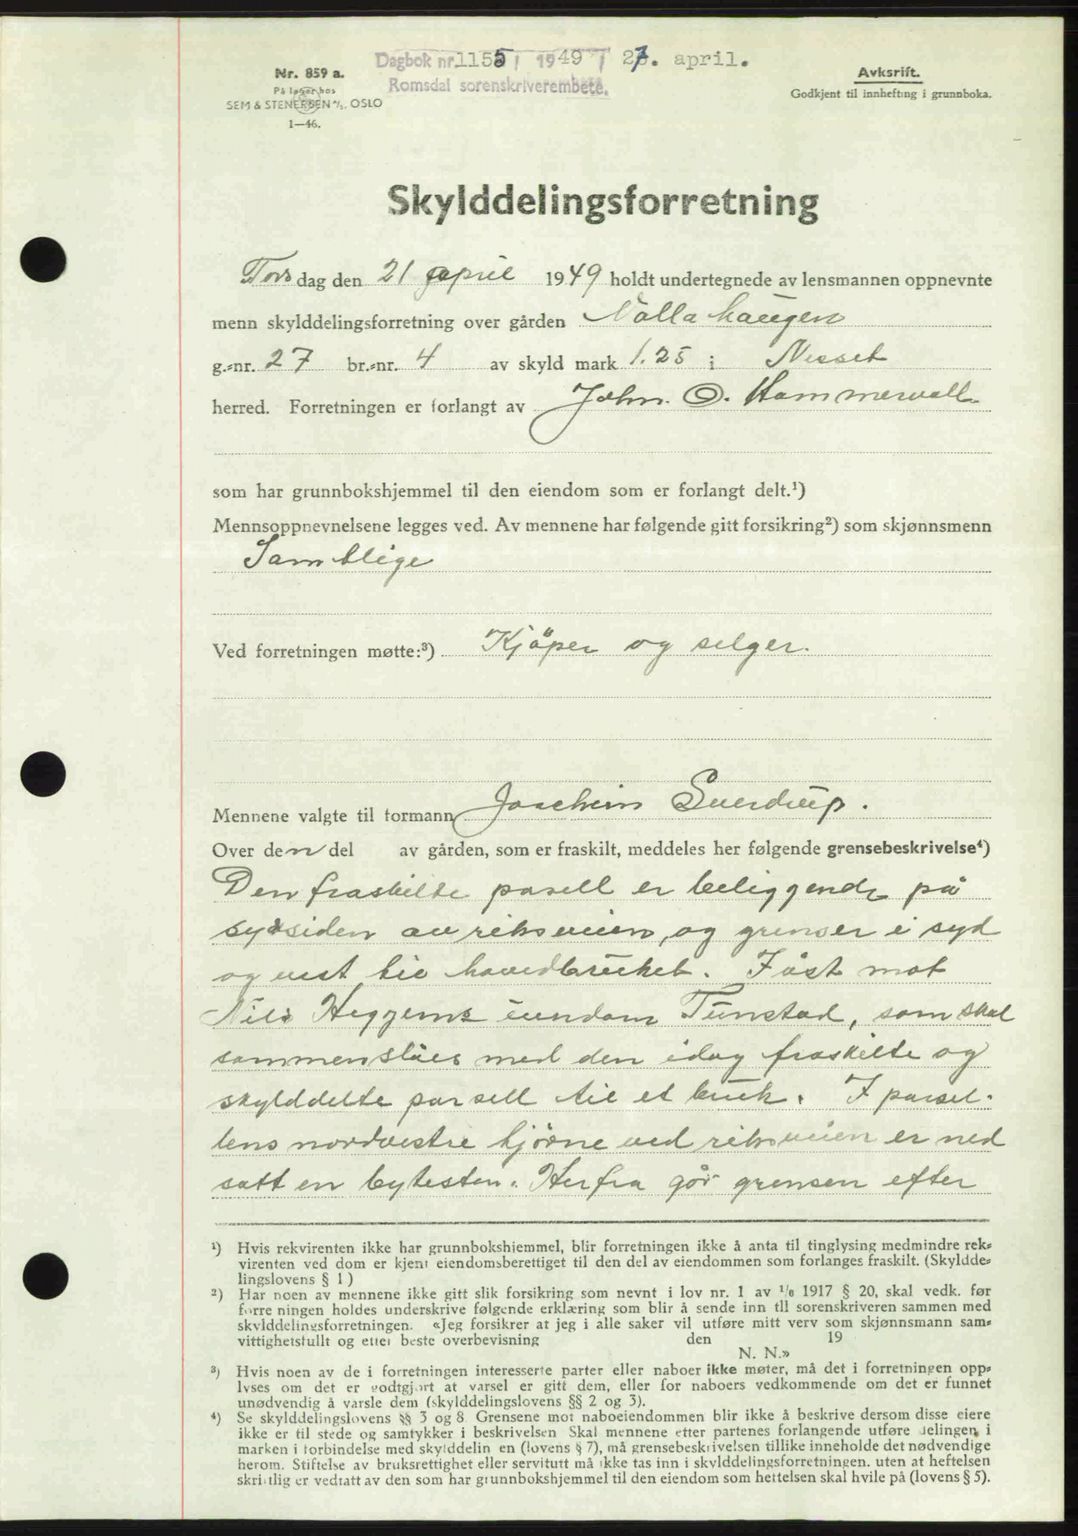 Dagbok nr. 1155 / 1949 / 27. april.
Romsdal sorenskriverembete.
Nr. 859 a.
På lager hos
SEM & STENERSEN A/S. OSLO
1—46.
Avskrift.
Godkjent til innhefting i grunnboka.
Skylddelingsforretning
Torsdag den 21 april 1949 holdt undertegnede av lensmannen oppnevnte
menn skylddelingsforretning over gården Nallahaugen
g.-nr. 27 br.-nr. 4 av skyld mark 1.25 i Nesset
herred. Forretningen er forlangt av John. O. Hammervoll
som har grunnbokshjemmel til den eiendom som er forlangt delt.¹)
Mennsoppnevnelsene legges ved. Av mennene har følgende gitt forsikring²) som skjønnsmenn
Samtlige
Ved forretningen møtte:³) Kjöper og selger.
Mennene valgte til formann Joachim Sverdrup.
Over den del av gården, som er fraskilt, meddeles her følgende grensebeskrivelse⁴)
Den fraskilte parsell er beliggende på
sydsiden av riksveien, og grenser i syd
og vest til hovedbruket. I öst mot
Nils Heggems eiendom Tunstad, som skal
sammenslåes med den idag fraskilte og
skylddelte parsell til et bruk. I parsel-
lens nordvestre hjörne ved riksveien er ned
satt en bytesten. Herfra går grensen efter
¹) Hvis rekvirenten ikke har grunnbokshjemmel, blir forretningen ikke å anta til tinglysing medmindre rek-
virenten ved dom er kjent eiendomsberettiget til den del av eiendommen som forlanges fraskilt. (Skyldde-
lingslovens § 1)
²) Har noen av mennene ikke gitt slik forsikring som nevnt i lov nr. 1 av 1/6 1917 § 20, skal vedk. før
forretningen holdes underskrive følgende erklæring som blir å sende inn til sorenskriveren sammen med
skylddelingsforretningen. «Jeg forsikrer at jeg i alle saker vil utføre mitt verv som skjønnsmann sam-
vittighetsfullt og etter beste overbevisning den 19
N. N.»
³) Hvis noen av de i forretningen interesserte parter eller naboer ikke møter, må det i forretningen opp-
lyses om det er godtgjort at varsel er gitt dem, eller for naboers vedkommende om det er funnet
unødvendig å varsle dem (skylddelingslovens §§ 2 og 3).
⁴) Se skylddelingslovens §§ 3 og 8. Grensene mot naboeiendommen blir ikke å beskrive dersom disse eiere
ikke er til stede og samtykker i beskrivelsen. Skal mennene etter partenes forlangende utføre delingen i
marken i forbindelse med skylddelingen (lovens § 7), må grensebeskrivelsen tillike inneholde det nødvendige
herom. Stiftelse av bruksrettighet eller servitutt må ikke tas inn i skylddelingsforretningen, uten at heftelsen
skriftlig er vedtatt av den som har grunnbokshjemmel til den eiendom som heftelsen skal hvile på (lovens § 5).